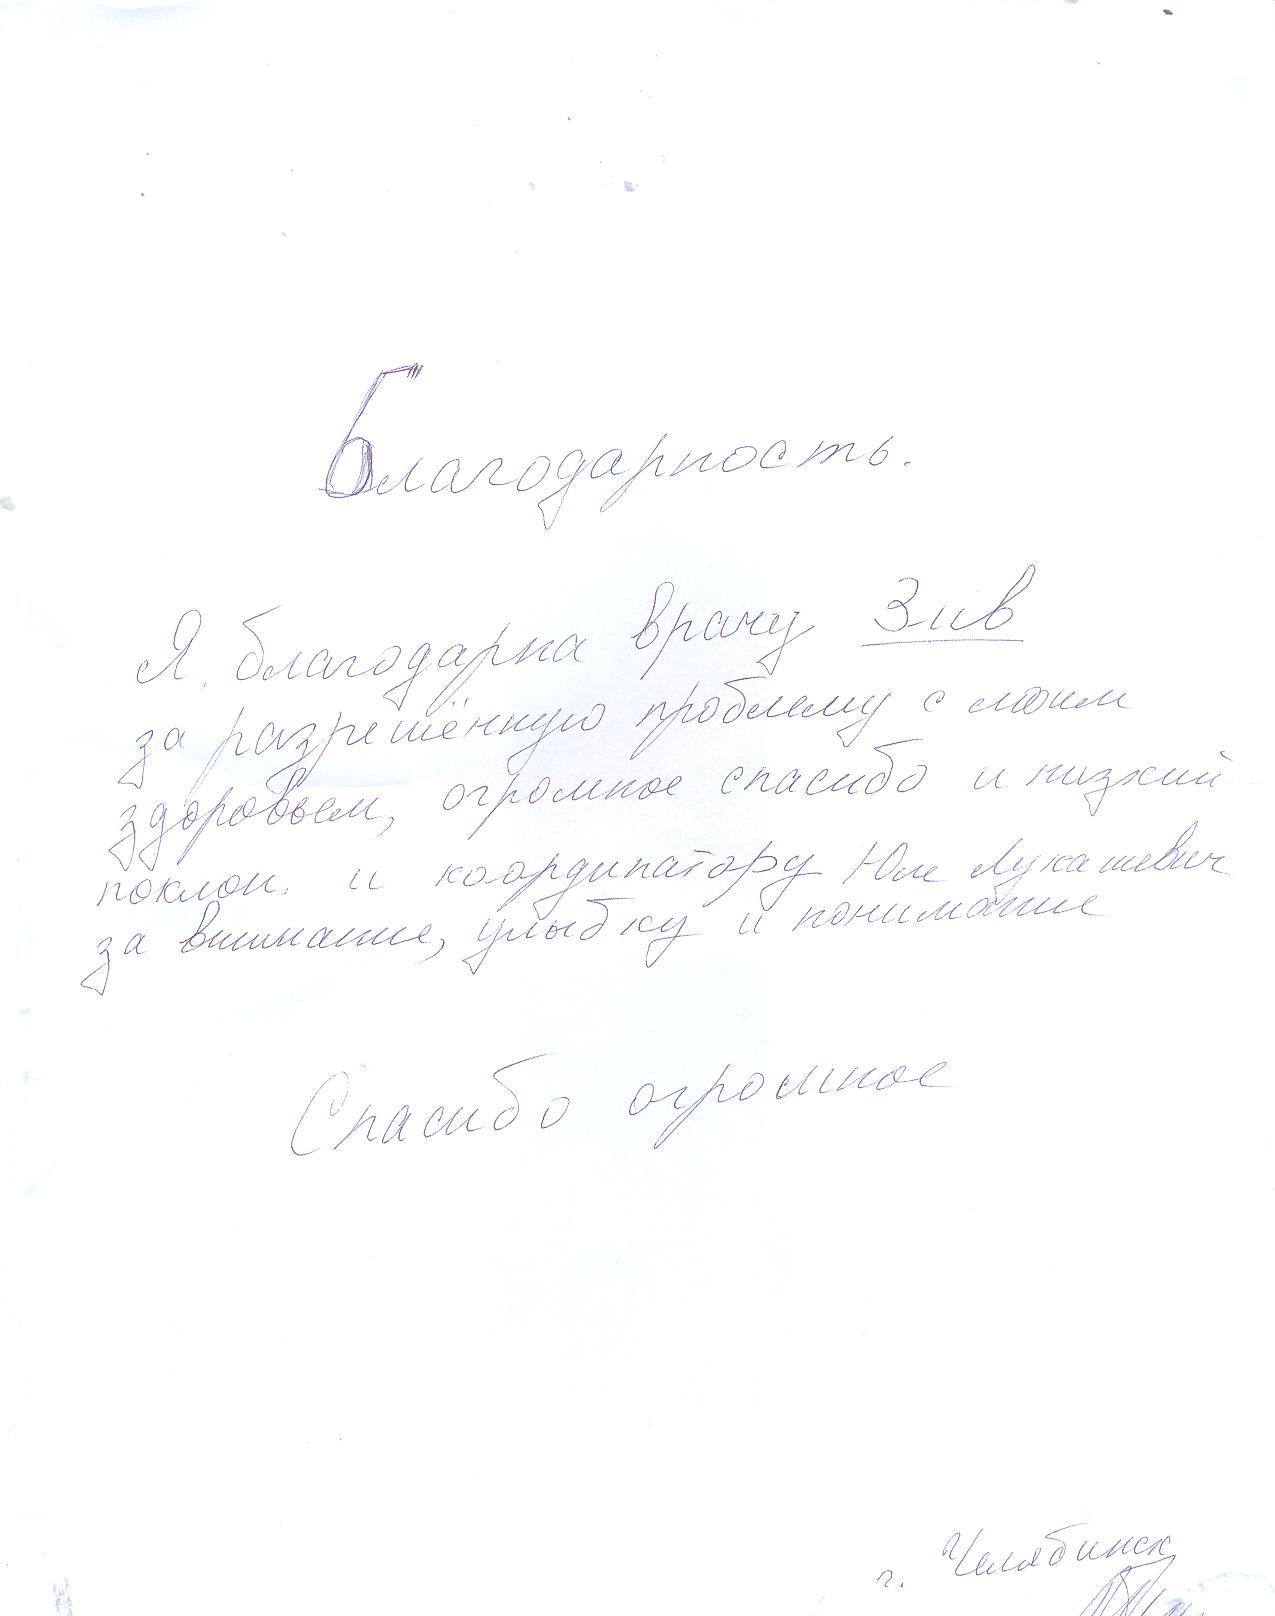 Благодарность.
Я благодарна врачу Зив
за разрешённую проблему с моим
здоровьем, огромное спасибо и низкий
поклон. и координатору Юле Лукашевич
за внимание, улыбку и понимание
Спасибо огромное
г. Челябинск